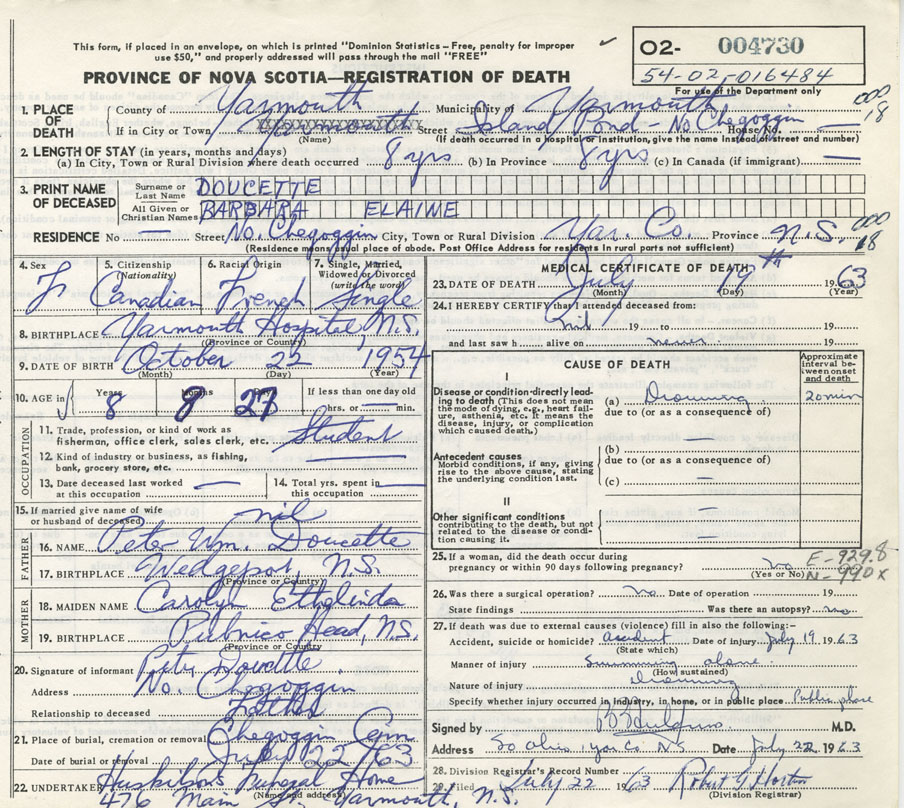 This form, if placed in an envelope, on which is printed "Dominion Statistics – Free, penalty for improper
use $50," and properly addressed will pass through the mail "FREE"
O2- 004730
54-02-016484
For use of the Department only
PROVINCE OF NOVA SCOTIA—REGISTRATION OF DEATH
1. PLACE OF DEATH
County of Yarmouth Municipality of Yarmouth
If in City or Town Street Island Pond - No Chegoggin House No. —
(Name) (If death occurred in a hospital or institution, give the name instead of street and number)
000
18
2. LENGTH OF STAY (in years, months and days)
(a) In City, Town or Rural Division where death occurred 8 yrs (b) In Province 8 yrs (c) In Canada (if immigrant) —
3. PRINT NAME OF DECEASED
Surname or Last Name DOUCETTE
All Given or Christian Names BARBARA ELAINE
RESIDENCE No — Street No. Chegoggin City, Town or Rural Division Yar. Co. Province N.S.
(Residence means usual place of abode. Post Office Address for residents in rural parts not sufficient)
000
18
4. Sex F
5. Citizenship (Nationality) Canadian
6. Racial Origin French
7. Single, Married, Widowed or Divorced (write the word) Single
8. BIRTHPLACE Yarmouth Hospital, N.S.
(Province or Country)
9. DATE OF BIRTH October 22 1954
(Month) (Day) (Year)
10. AGE in Years 8 Months 8 Days 27 If less than one day old
hrs. or min.
OCCUPATION
11. Trade, profession, or kind of work as
fisherman, office clerk, sales clerk, etc. Student
12. Kind of industry or business, as fishing,
bank, grocery store, etc. —
13. Date deceased last worked at this occupation —
14. Total yrs. spent in this occupation —
15. If married give name of wife
or husband of deceased nil
FATHER
16. NAME Peter Wm. Doucette
17. BIRTHPLACE Wedgeport, N.S.
(Province or Country)
MOTHER
18. MAIDEN NAME Carolyn Ethelinda
19. BIRTHPLACE Pubnico Head, N.S.
(Province or Country)
20. Signature of informant Peter Doucette
Address No. Chegoggin
Relationship to deceased Father
21. Place of burial, cremation or removal Chegoggin Cem.
Date of burial or removal July 22 /63
22. UNDERTAKER Funeral Home
(Name and address)
476 Main St. Yarmouth, N.S.
MEDICAL CERTIFICATE OF DEATH
23. DATE OF DEATH July 19th 1963
(Month) (Day) (Year)
24. I HEREBY CERTIFY that I attended deceased from:
nil 19 to 19
and last saw h alive on never 19
CAUSE OF DEATH
Approximate interval between onset and death
I
Disease or condition directly leading to death (This does not mean the mode of dying, e.g., heart failure, asthenia, etc. It means the disease, injury, or complication which caused death.)
(a) Drowning 20 min
due to (or as a consequence of)
Antecedent causes
Morbid conditions, if any, giving rise to the above cause, stating the underlying condition last.
(b) —
due to (or as a consequence of)
(c) —
II
Other significant conditions
contributing to the death, but not related to the disease or condition causing it.
—
—
25. If a woman, did the death occur during
pregnancy or within 90 days following pregnancy? no
(Yes or No)
E-929.8
N-990X
26. Was there a surgical operation? no Date of operation 19
State findings Was there an autopsy? no
27. If death was due to external causes (violence) fill in also the following:-
Accident, suicide or homicide? accident Date of injury July 19 1963
(State which)
Manner of injury Swimming alone
(How sustained)
Nature of injury Drowning
Specify whether injury occurred in industry, in home, or in public place Public place
Signed by M.D.
Address Yar Co. N.S Date July 22 1963
28. Division Registrar's Record Number
29. Filed July 22 1963 Robert G. Horton
(Division Registrar)